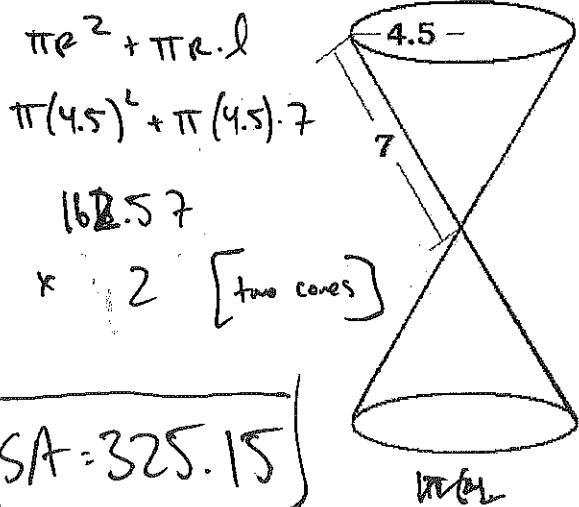 πr² + πr·l
π(4.5)² + π(4.5)·7
162.57
x 2 [two cones]
SA=325.15
4.5
7